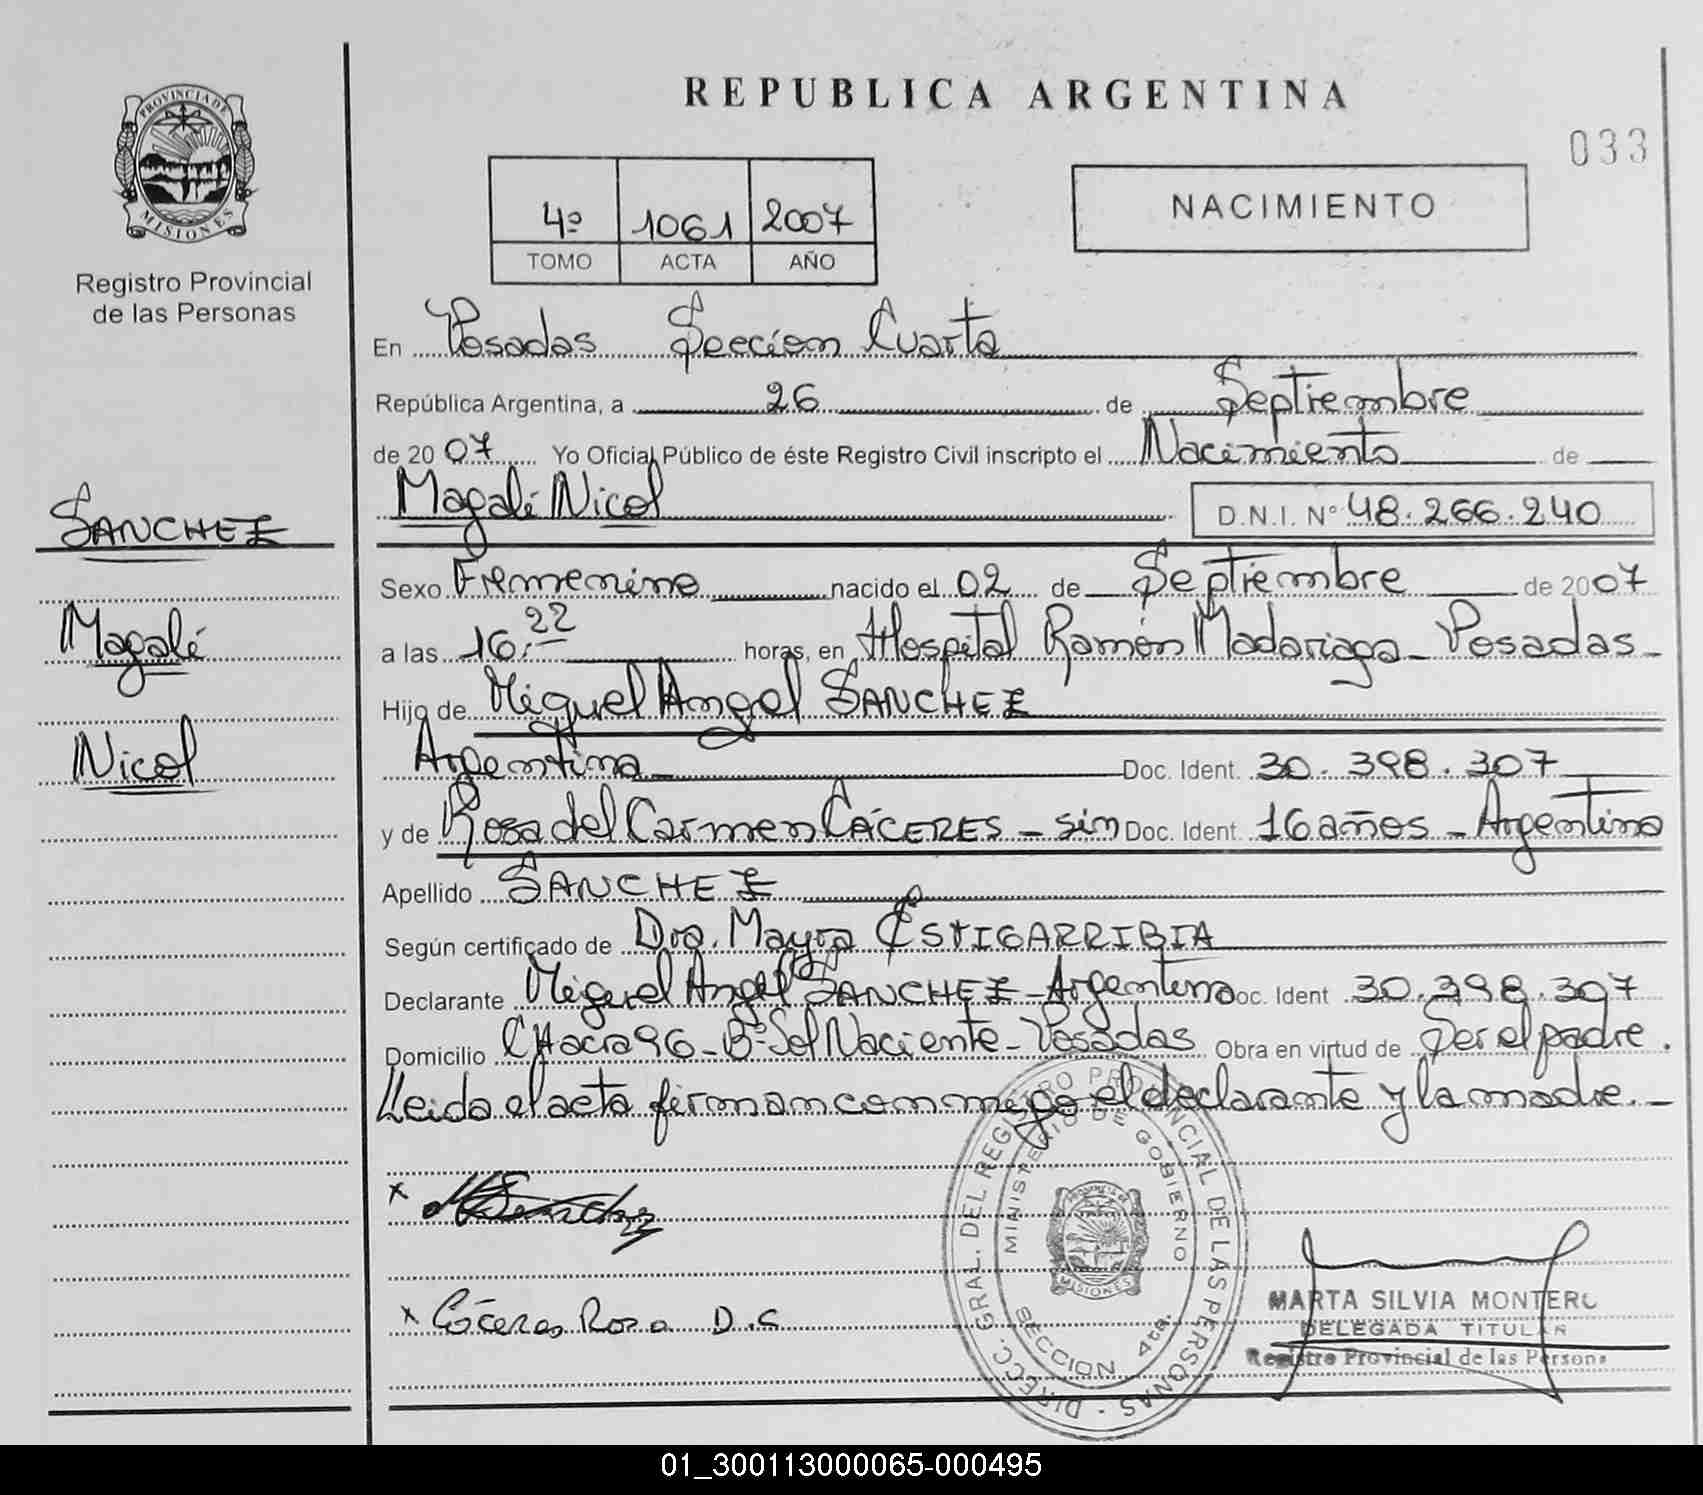 REPUBLICA ARGENTINA
033
PROVINCIA DE
MISIONES
Registro Provincial
de las Personas
4º 1061 2007
TOMO ACTA AÑO
NACIMIENTO
En Posadas Sección Cuarta
República Argentina, a 26 de Septiembre
de 2007 Yo Oficial Público de éste Registro Civil inscripto el Nacimiento de
Magalí Nicol D.N.I. Nº 48.266.240
SANCHEZ
Magalí
Nicol
Sexo Femenino nacido el 02 de Septiembre de 2007
a las 16:22 horas, en Hospital Ramón Madariaga - Posadas -
Hijo de Miguel Angel SANCHEZ
Argentina Doc. Ident. 30.398.307
y de Rosa del Carmen CÁCERES - sin Doc. Ident. 16 años - Argentina
Apellido SANCHEZ
Según certificado de Dra. Mayra ESTIGARRIBIA
Declarante Miguel Angel SANCHEZ - Argentino Doc. Ident 30.398.307
Domicilio CHacra 96 - Bº Sol Naciente - Posadas Obra en virtud de Ser el padre.
Leida el acta firman conmigo el declarante y la madre. -
x Sanchez
x Cáceres Rosa D.C
DIRECC. GRAL. DEL REGISTRO PROVINCIAL DE LAS PERSONAS -
MINISTERIO DE GOBIERNO
MISIONES
SECCION 4ta.
MARTA SILVIA MONTERO
DELEGADA TITULAR
Registro Provincial de las Persona
01_300113000065-000495